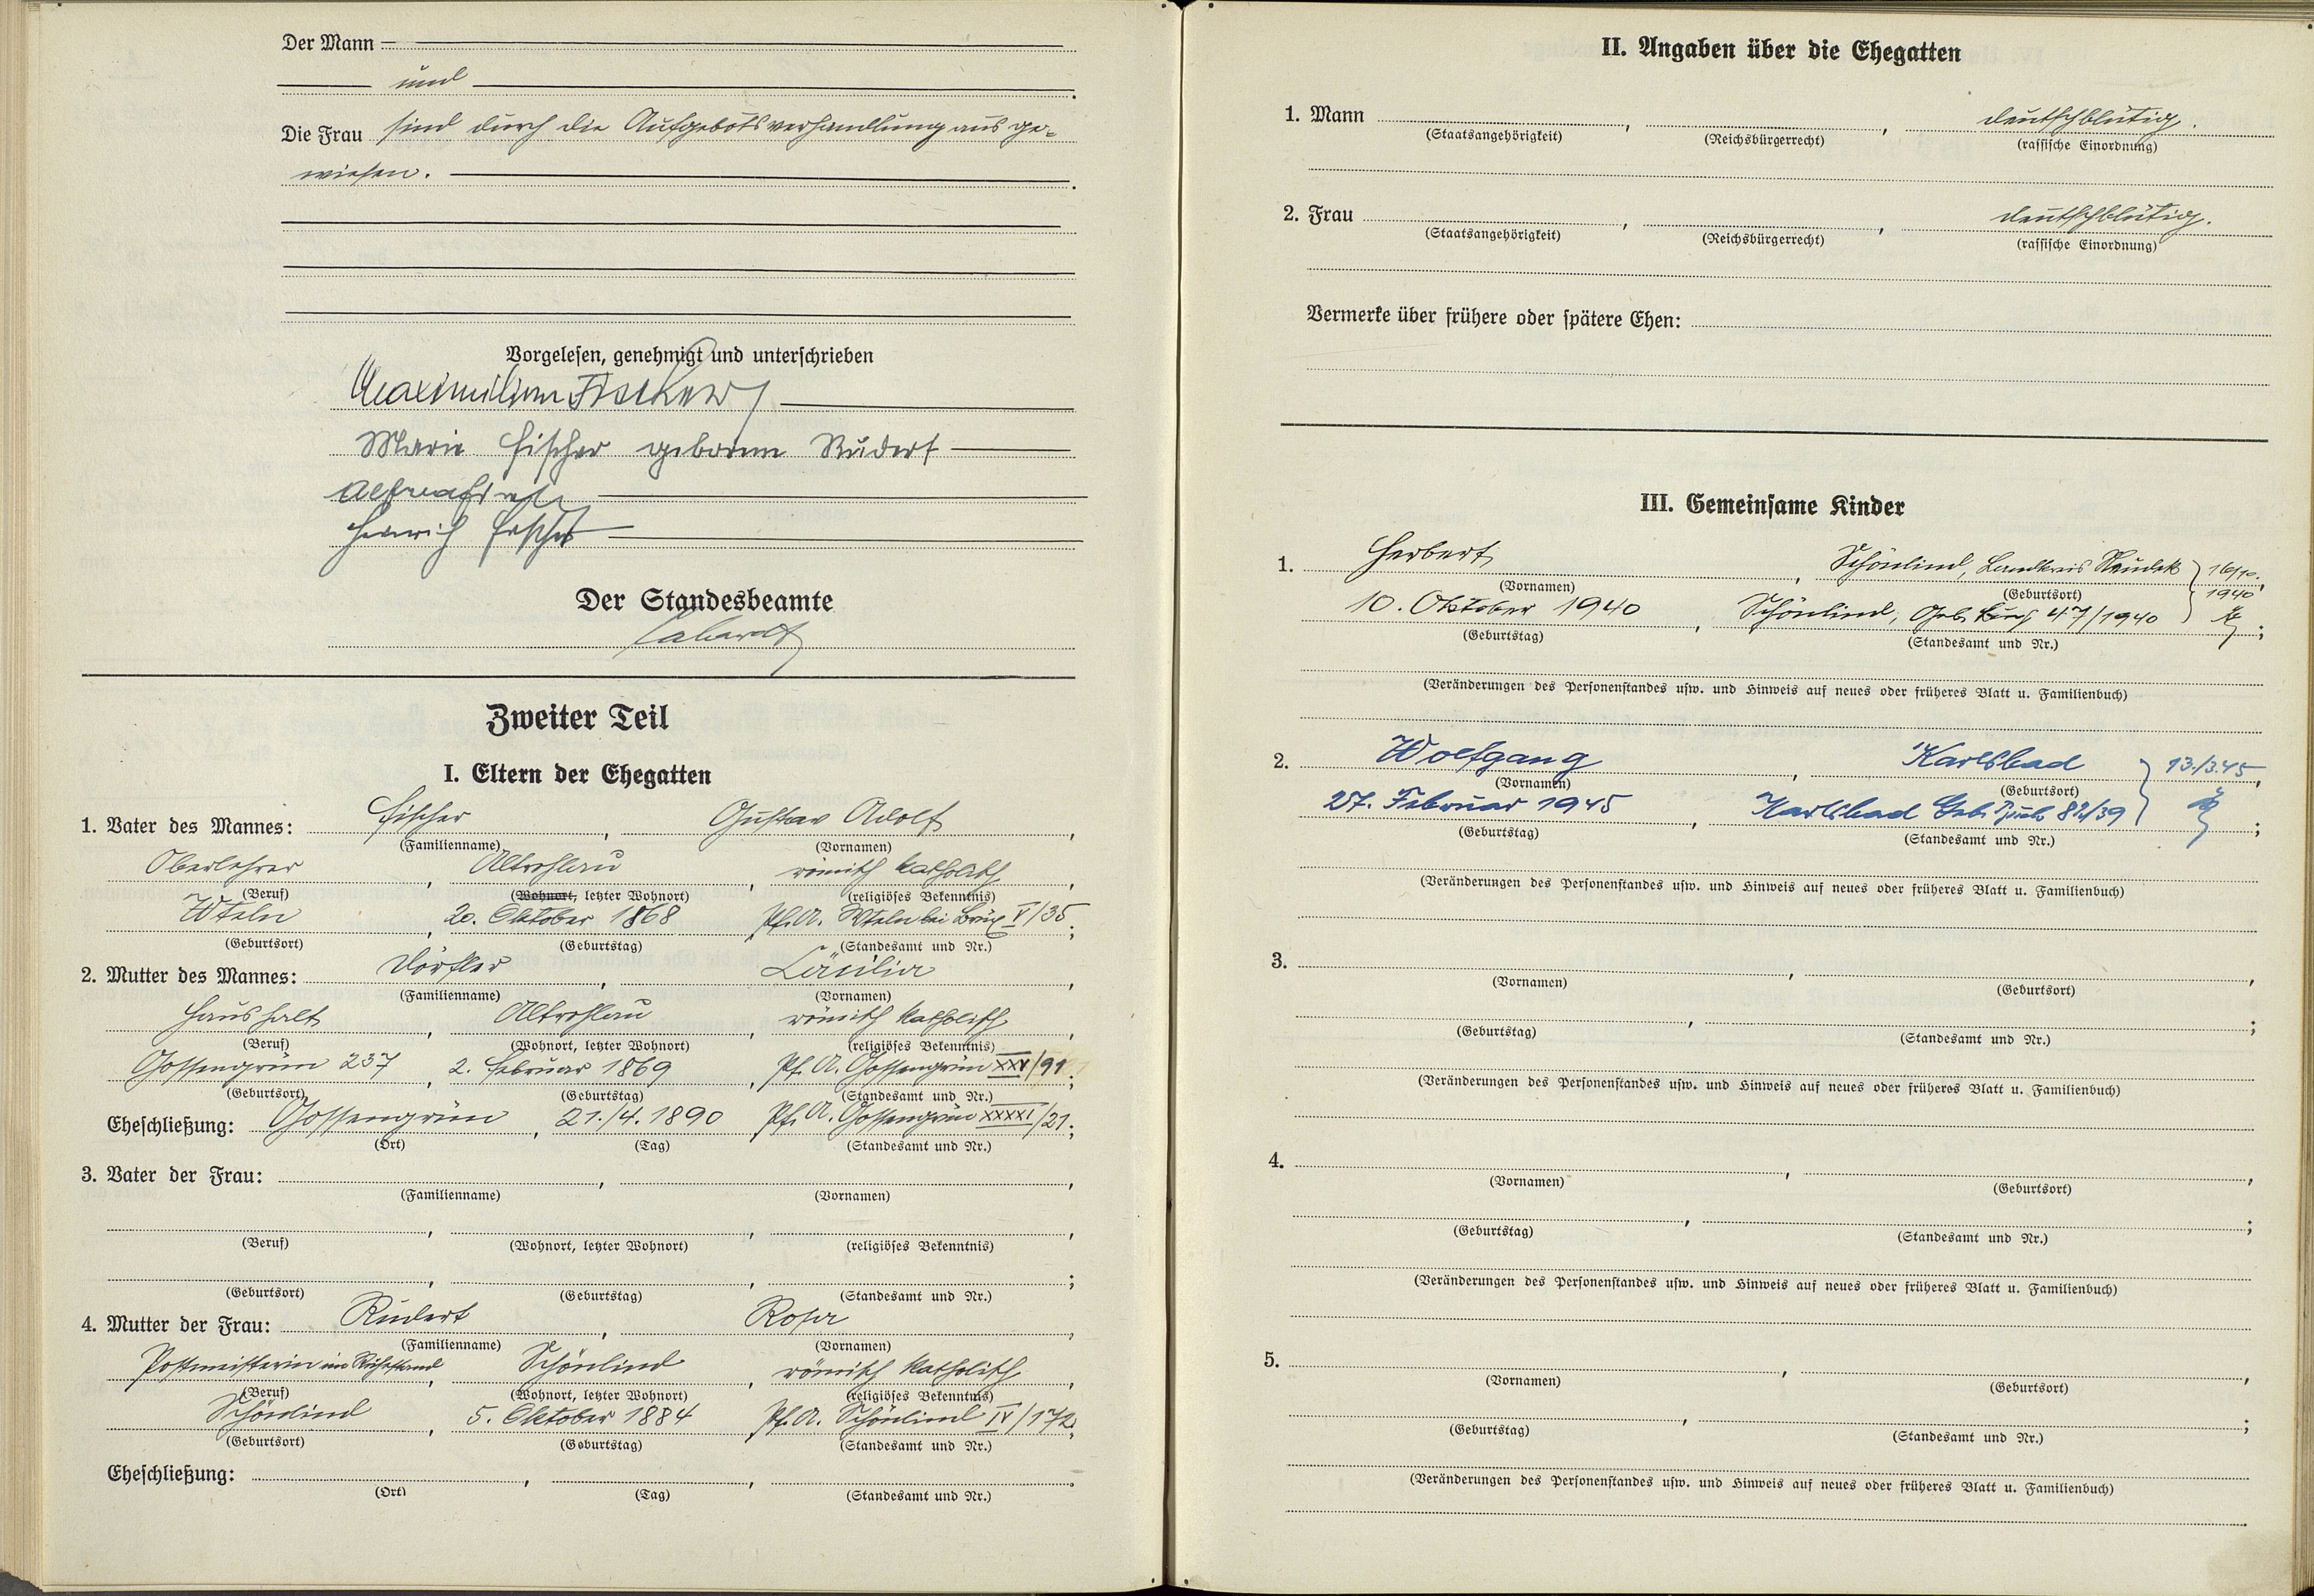 Der Mann
und
Die Frau sind durch die Aufgebotsverhandlung ausge-
wiesen.
Vorgelesen, genehmigt und unterschrieben
Maximilian Fischer
Marie Fischer geborene Rudert
Heinrich Fischer
Der Standesbeamte
Zweiter Teil
I. Eltern der Ehegatten
1. Vater des Mannes: Fischer, Gustav Adolf,
(Familienname) (Vornamen)
Oberlehrer, Altrohlau, römisch katholisch,
(Beruf) (Wohnort, letzter Wohnort) (religiöses Bekenntnis)
Wteln, 20. Oktober 1868 Pf. A. Wteln bei Brüx V/35;
(Geburtsort) (Geburtstag) (Standesamt und Nr.)
2. Mutter des Mannes: Dörfler, Cäcilia,
(Familienname) (Vornamen)
Haushalt, Altrohlau, römisch katholisch,
(Beruf) (Wohnort, letzter Wohnort) (religiöses Bekenntnis)
Gossengrün 237, 2. Februar 1869, Pf. A. Gossengrün XXV/91;
(Geburtsort) (Geburtstag) (Standesamt und Nr.)
Eheschließung: Gossengrün, 21./4. 1890 Pf. A. Gossengrün XXXXI/21;
(Ort) (Tag) (Standesamt und Nr.)
3. Vater der Frau: , ,
(Familienname) (Vornamen)
, , ,
(Beruf) (Wohnort, letzter Wohnort) (religiöses Bekenntnis)
, , ;
(Geburtsort) (Geburtstag) (Standesamt und Nr.)
4. Mutter der Frau: Rudert, Rosa,
(Familienname) (Vornamen)
Postmeisterin im Ruhestand, Schönlind, römisch katholisch,
(Beruf) (Wohnort, letzter Wohnort) (religiöses Bekenntnis)
Schönlind, 5. Oktober 1884, Pf. A. Schönlind IV/172;
(Geburtsort) (Geburtstag) (Standesamt und Nr.)
Eheschließung: , , .
(Ort) (Tag) (Standesamt und Nr.)
II. Angaben über die Ehegatten
1. Mann , , deutschblütig.
(Staatsangehörigkeit) (Reichsbürgerrecht) (rassische Einordnung)
2. Frau , , deutschblütig.
(Staatsangehörigkeit) (Reichsbürgerrecht) (rassische Einordnung)
Vermerke über frühere oder spätere Ehen:
III. Gemeinsame Kinder
1. Herbert, Schönlind, Landkreis Neudek 16/10.
(Vornamen) (Geburtsort) 1940
10. Oktober 1940, Schönlind, Geb. 47/1940 ;
(Geburtstag) (Standesamt und Nr.)
(Veränderungen des Personenstandes usw. und Hinweis auf neues oder früheres Blatt u. Familienbuch)
2. Wolfgang, Karlsbad 13./3.45,
(Vornamen) (Geburtsort)
27. Februar 1945, Karlsbad Geb. ;
(Geburtstag) (Standesamt und Nr.)
(Veränderungen des Personenstandes usw. und Hinweis auf neues oder früheres Blatt u. Familienbuch)
3. , ,
(Vornamen) (Geburtsort)
, ;
(Geburtstag) (Standesamt und Nr.)
(Veränderungen des Personenstandes usw. und Hinweis auf neues oder früheres Blatt u. Familienbuch)
4. , ,
(Vornamen) (Geburtsort)
, ;
(Geburtstag) (Standesamt und Nr.)
(Veränderungen des Personenstandes usw. und Hinweis auf neues oder früheres Blatt u. Familienbuch)
5. , ,
(Vornamen) (Geburtsort)
, ;
(Geburtstag) (Standesamt und Nr.)
(Veränderungen des Personenstandes usw. und Hinweis auf neues oder früheres Blatt u. Familienbuch)